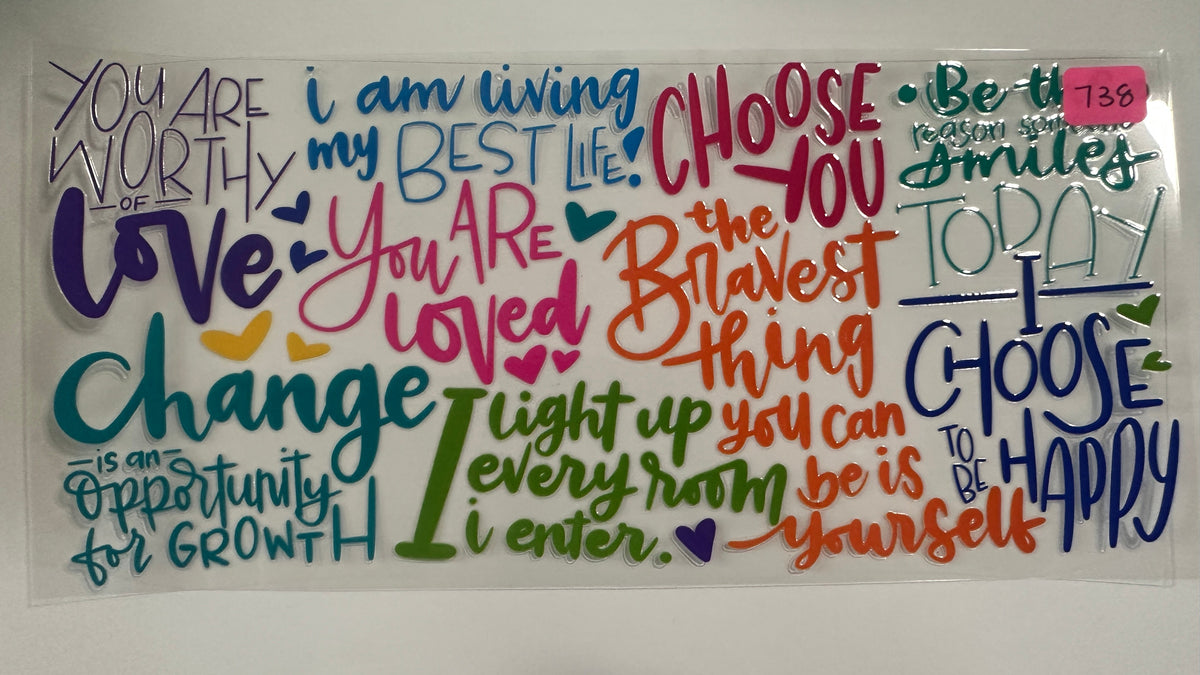 YOU ARE
WORTHY
OF
Love
i am living
my BEST LIFE!
CHOOSE
YOU
Be the
reason someone
smiles
738
You ARE
loved
the
Bravest
thing
you can
be is
yourself
TODAY
I
CHOOSE
TO
BE
HAPPY
Change
-is an-
opportunity
for GROWTH
I light up
every room
i enter.